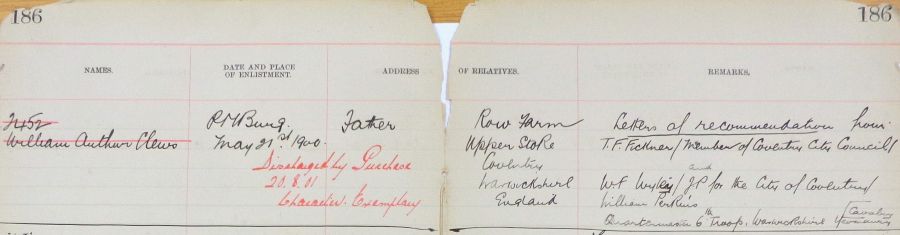 186
186
NAMES.
DATE AND PLACE
OF ENLISTMENT.
ADDRESS
OF RELATIVES.
REMARKS.
2452
William Arthur Clews
P.M.Burg.
May 21st 1900.
Discharged by Purchase
20.8.01
Character: Exemplary
Father
Row Farm
Upper Stoke
Coventry
Warwickshire
England
Letters of recommendation from
T.F. / Member of Coventry City Council
and
W.F. / JP for the City of Coventry
William Perkins
Quartermaster 6th Troop. Warwickshire Yeomanry
Cavalry